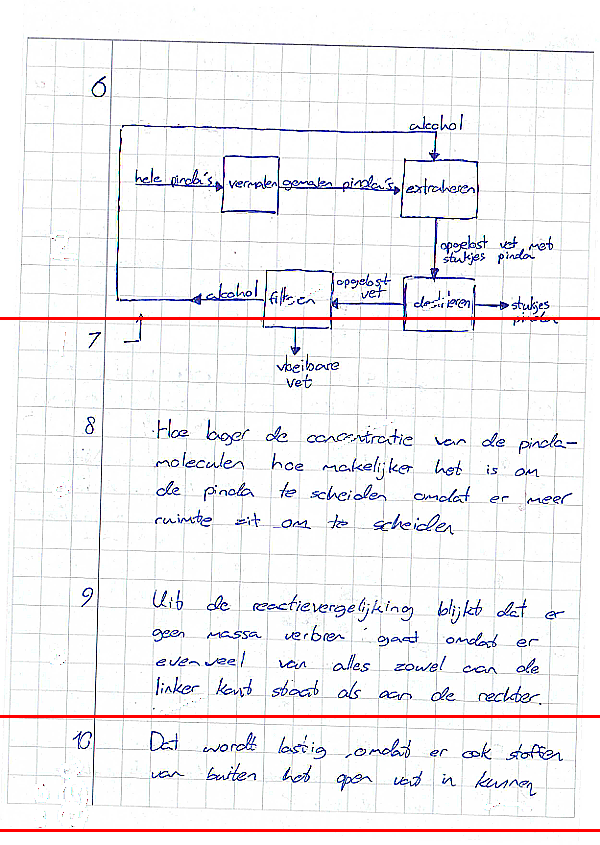 6
alcohol
hele pinda's
vermalen
gemalen pinda's
extraheren
opgelost vet met
stukjes pinda
alcohol
filtsen
opgelost
vet
destileren
stukjes
pinda
7
vloeibare
vet
8
Hoe lager de concentratie van de pinda-
moleculen hoe makelijker het is om
de pinda te scheiden omdat er meer
ruimte zit om te scheiden
9
Uit de reactievergelijking blijkt dat er
geen massa verloren gaat omdat er
evenveel van alles zowel aan de
linker kant staat als aan de rechter.
10
Dat wordt lastig omdat er ook stoffen
van buiten het open vat in kunnen